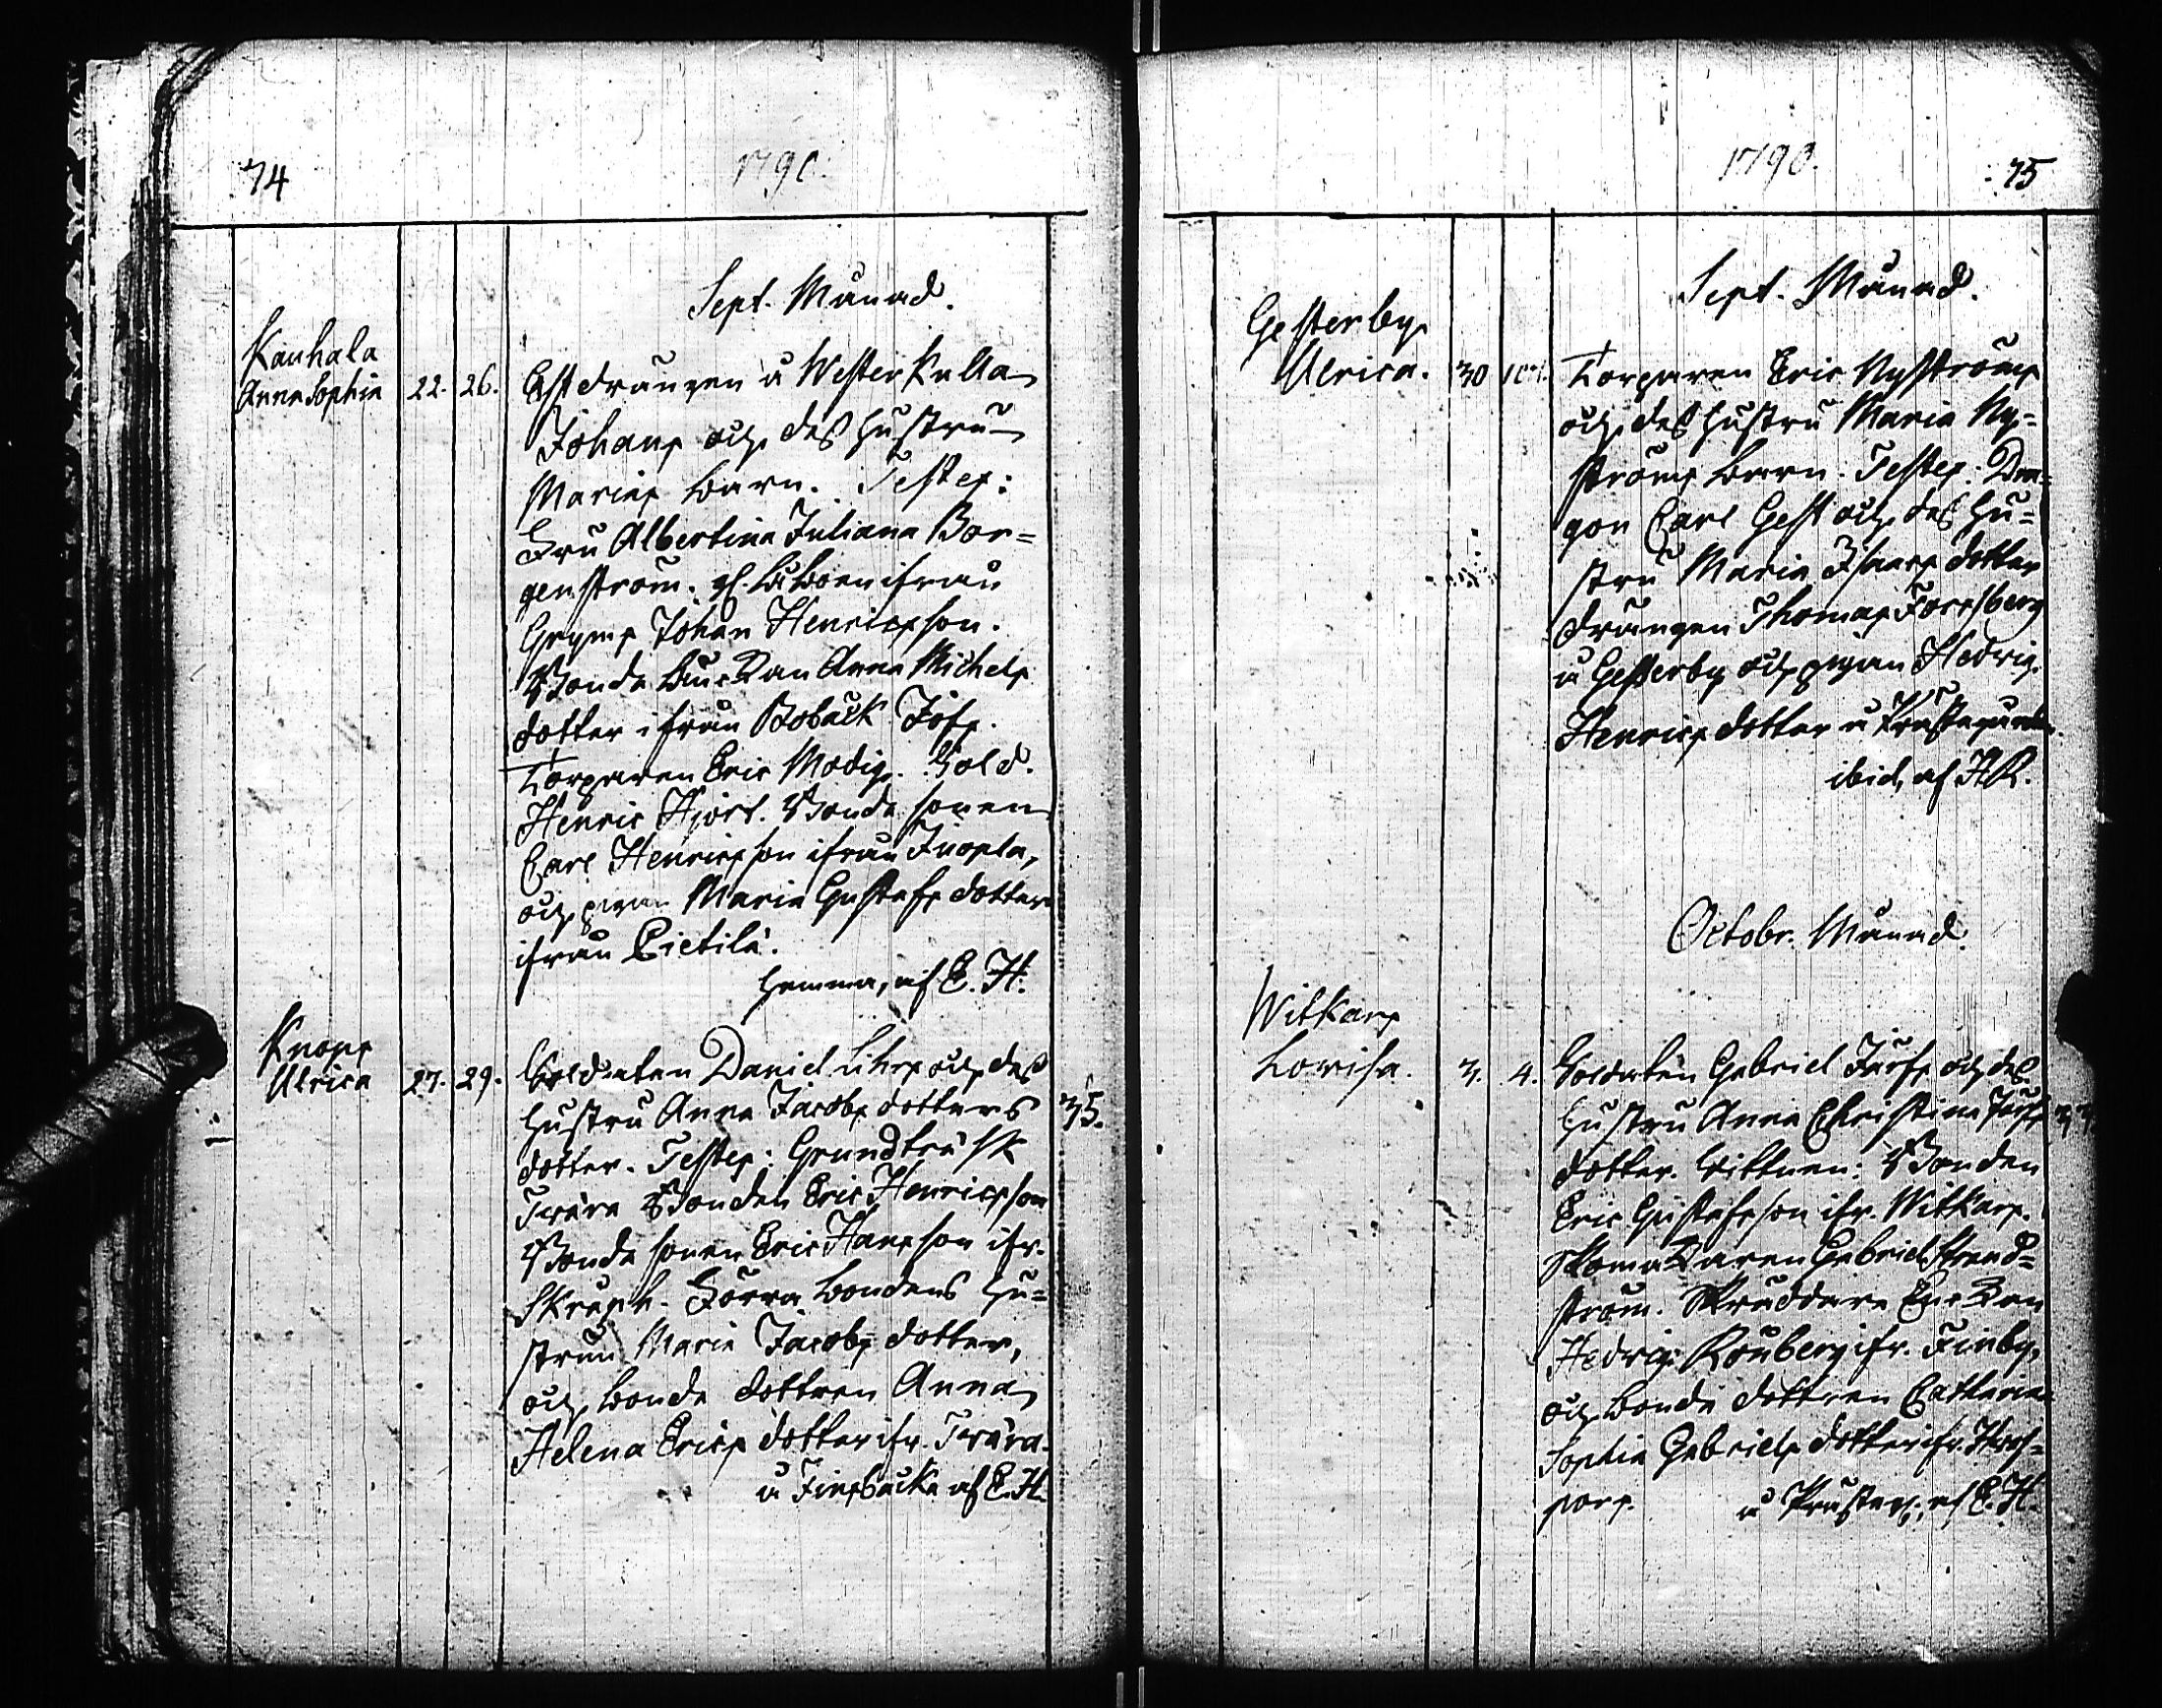 74
1790.
Sept. Månad.
Kauhala
Anna Sophia 22. 26. Gästdrängen å Westerkulla
Johans och des hustru
Marias barn. Testes:
Fru Albertina Juliana Bor=
genström. ifrån
Gryms Johan Henricsson.
Bonde Enckan Anna Michels
dotter ifrån Boback Jofs.
Torparen Eric Modig. Sold.
Henric Hjort. Bonde sonen
Carl Henricsson ifrån Finopla,
och pigan Maria Gustafs dotter
ifrån Pietilä.
hemma, af E. H.
Knops
Ulrica 27. 29. Soldaten Daniel Lihrs och des
hustru Anna Jacobs dotters
dotter. Testes: Grundträsk
Terära Bonden Eric Henricsson
Bonde sonen Eric Hansson ifr.
Skräpp. Förra bondens hu=
strun Maria Jacobs dotter,
och bonde dottren Anna
Helena Erics dotter ifr. Terära.
å Finsbacka af E. H.
35.
1790.
75
Sept. Månad.
Gesterby
Ulrica. 30 Torparen Eric Nyströms
och des hustru Maria Ny=
ströms barn. Testes: Dra=
gon Carl Gest och des hu=
stru Maria Isaacs dotter
drängen Thomas Forssberg
å Gesterby och pigan Hedvig
Henrics dotter å Prästegården
ibid, af H R.
Octobr. Månad.
Witkars
Lovisa. 3. 4. Soldaten Gabriel Järfs och des
hustru Anna Christina Järfs
dotter. Vittnen: Bonden
Eric Gustafsson ifr. Witkars.
Skomakaren Gabriel Strand=
ström. Skräddare Enckan
Hedvig Rönberg ifr. Finby,
och bonde dottren Catharina
Sophia Gabriels dotter ifr.
pors. å Prästeg. af E. H.